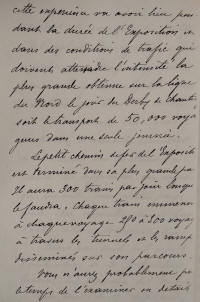 cette experience va avoir lieu pen
dant la durée de l'Exposition et
dans des conditions de trafic qui
doivent atteindre l'intensité la
plus grande obtenue sur la ligne
du Nord le jour du Derby de Chanti
soit le transport de 50,000 voya
geurs dans une seule journée.
Le petit chemin de fer de l'Exposit
est terminé dans sa plus grande pa
Il aura 300 trains par jour lorsque
le faudra. Chaque train emmenera
à chaque voyage 250 à 300 voyag
à travers les tunnels et les rampes
disséminés sur son parcours.
Vous n'aurez probablement pas
le temps de l'examiner en détails